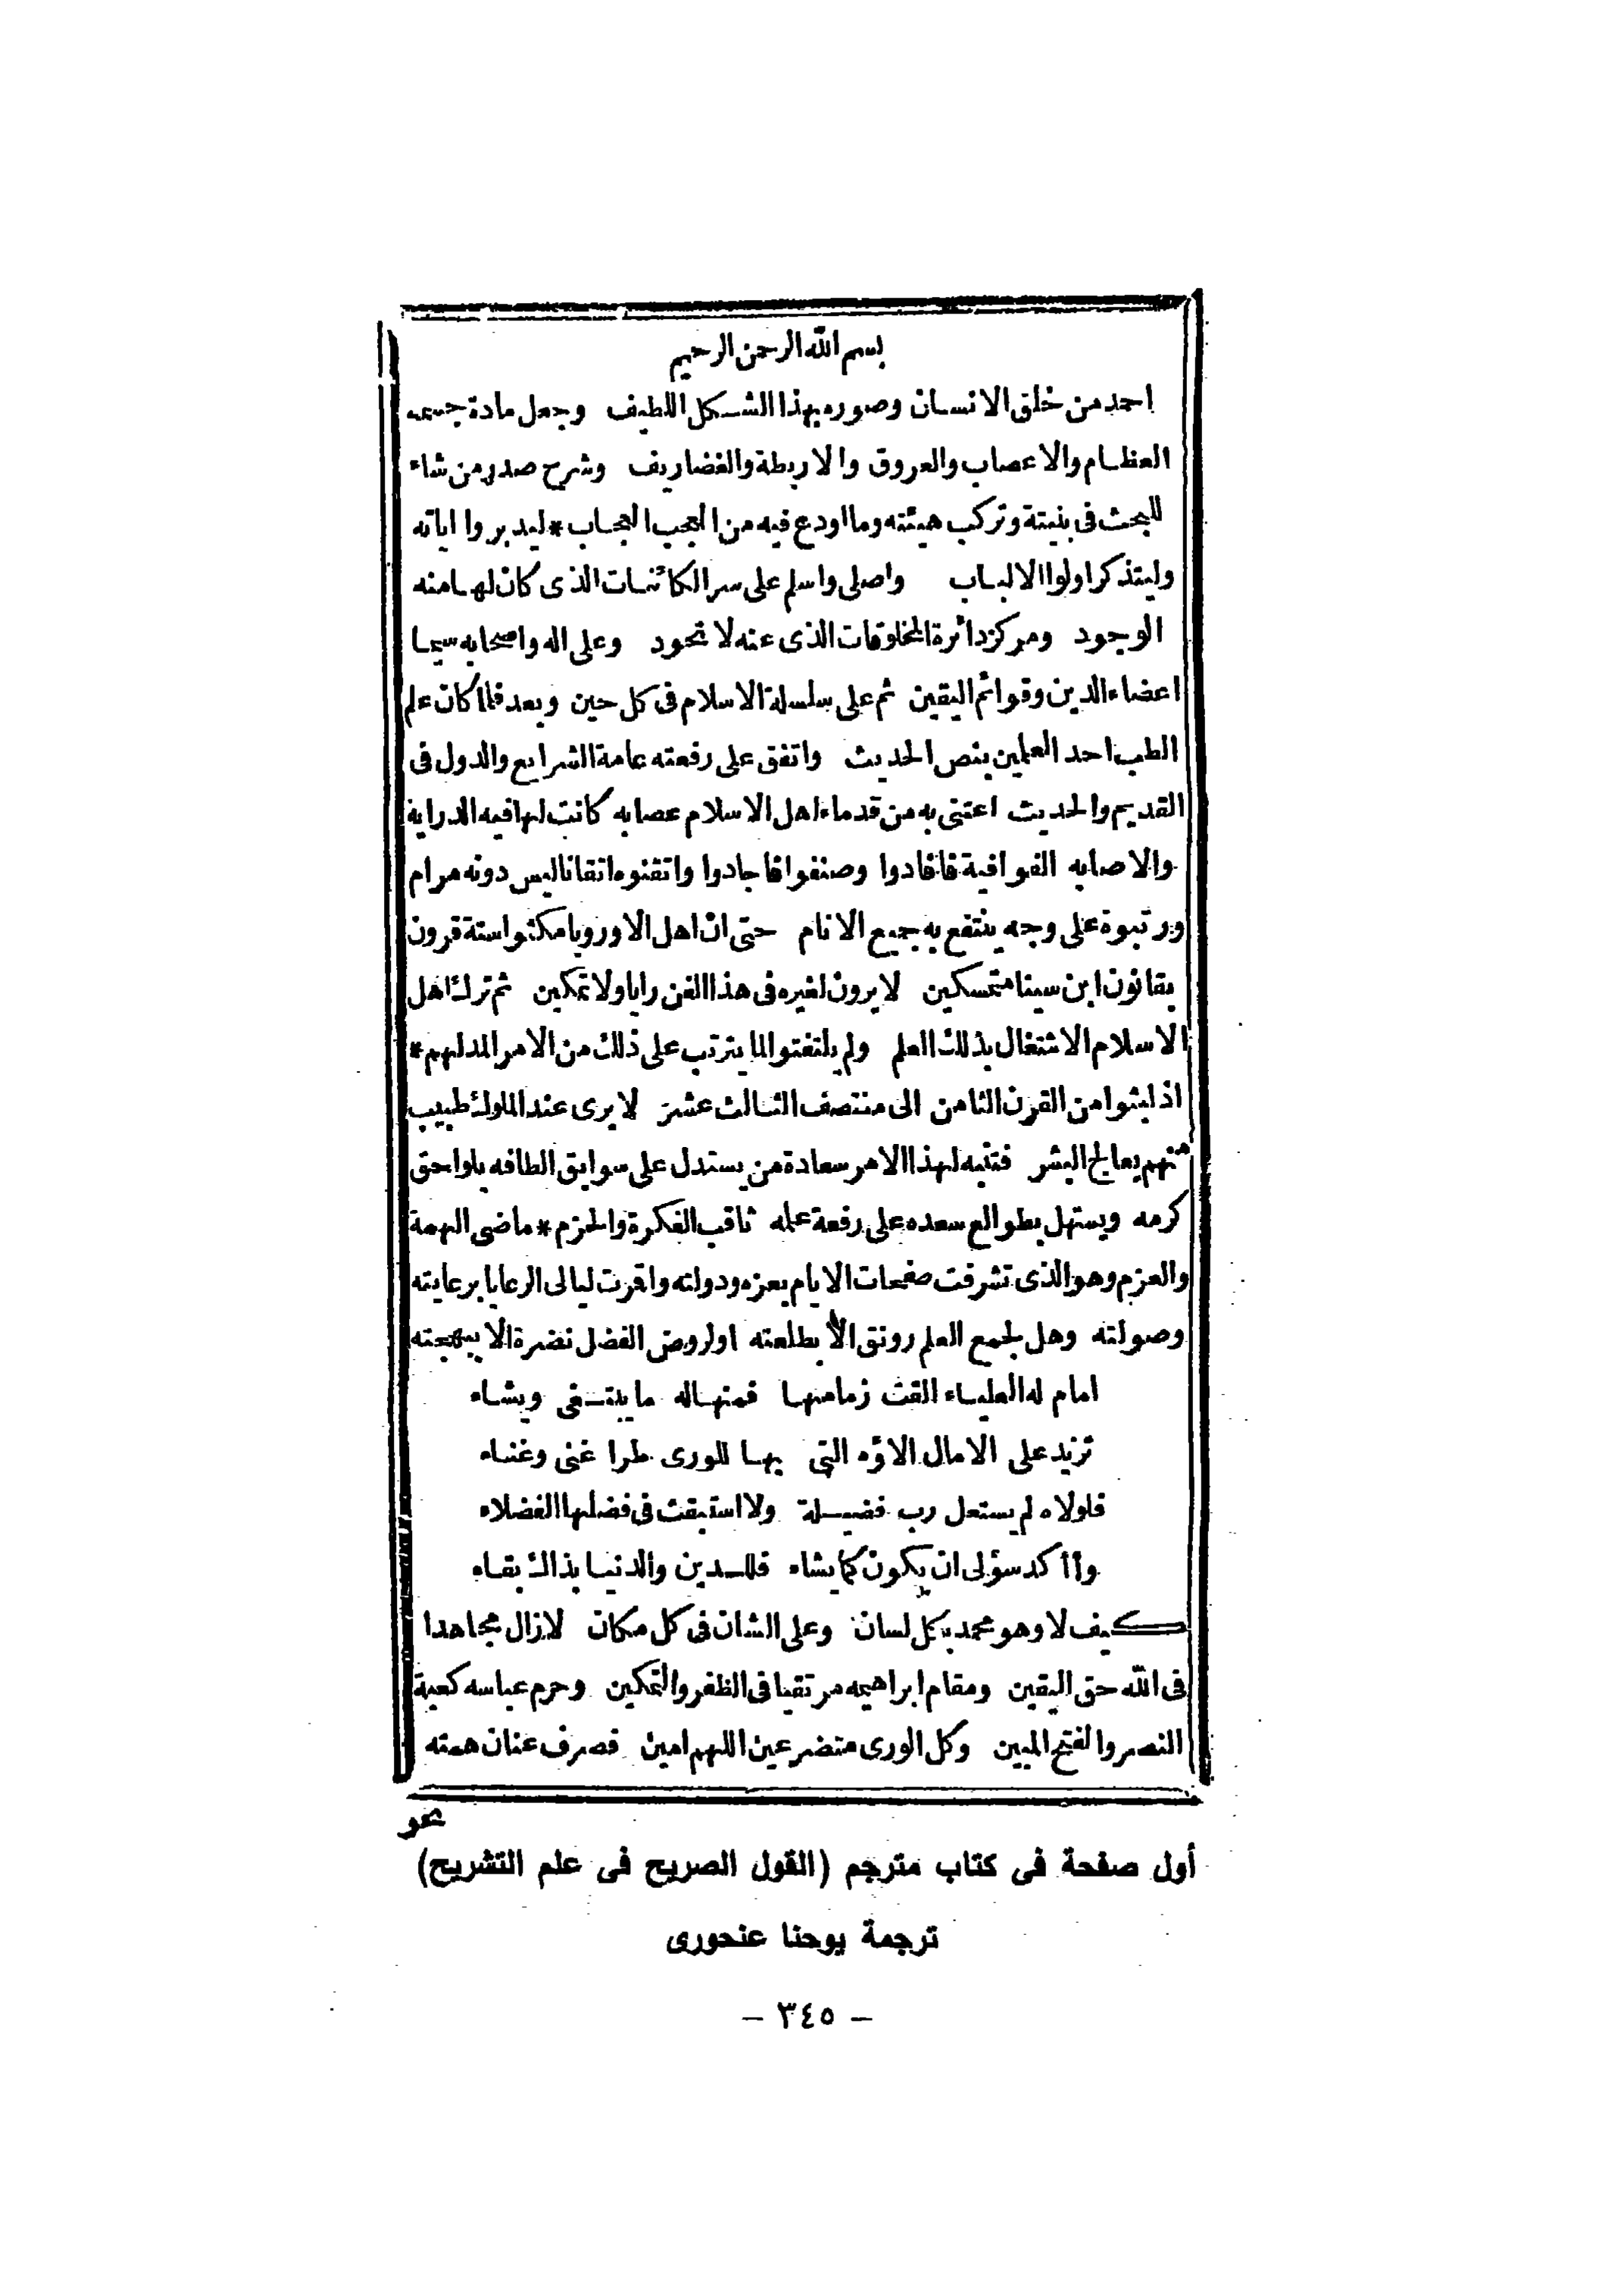 بسم الله الرحمن الرحيم
احمد من خلق الانسان وصوره بهذا الشكل اللطيف وجعل مادة جسمه
العظام والاعصاب والعروق والاربطة والغضاريف وشرح صدر من شاء
للبحث فى بنيتة وتركب هيئته وما اودع فيه من العجب العجاب * ليدبروا اياته
وليتذكر اولوا الالباب واصلى واسلم على سر الكائنات الذى كان لها منه
الوجود ومركز دائرة المخلوقات الذى عنه لا تحود وعلى اله واصحابه سيما
اعضاء الدين وقوائم اليقين ثم على سلسلة الاسلام فى كل حين وبعد فلما كان علم
الطب احد العلمين بنص الحديث واتفق على رفعته عامة الشرايع والدول فى
القديم والحديث اعتنى به من قدماء اهل الاسلام عصابه كانت لها فيه الدراية
والاصابه الفوا فية فافادوا وصنفوا فاجادوا واتقنوه اتقانا ليس دونه مرام
ورتبوة على وجه ينتفع به جميع الانام حتى ان اهل الاوروبا مكثوا ستة قرون
بقانون ابن سينا متمسكين لا يرون لغيره فى هذا الفن رايا ولا تمكين ثم ترك اهل
الاسلام الاشتغال بذلك العلم ولم يلتفتوا لما يترتب على ذلك من الامر المدلهم *
اذ لبثوا من القرن الثامن الى منتصف الثالث عشر لا يرى عند الملوك طبيب
منهم يعالج البشر فتنبه لهذا الامر سعادة من يستدل على سوابق الطافه بلواحق
كرمه ويستهل بطوالع سعده على رفعة علمه ثاقب الفكرة والحزم * ماضى الهمة
والعزم وهو الذى تشرفت صفحات الايام بعزه ودولته واقرت ليالى الرعايا برعايته
وصولته وهل لجمع العلم رونق الا بطلعته او لروض الفضل نضرة الا ببهجته
امام له العلياء القت زمامها فمنها له ما يبتــغى ويشاء
تزيد على الامال الاؤه التى بها للورى طرا غنى وغناء
فلولاه لم يستعل رب فضيلة ولا استبقت فى فضلها الفضلاء
وأأكد سؤلى ان يكون كما يشاء فللدين والدنيا بذاك بقاء
كيف لا وهو محمد بكل لسان وعلى الشان فى كل مكان لازال مجاهدا
فى الله حق اليقين ومقام ابراهيمه مرتقيا فى الظفر والتمكين وحرم عباسه كعبة
النصر والفتح المبين وكل الورى متضرعين اللهم امين فصرف عنان همته
نحو
أول صفحة فى كتاب مترجم (القول الصريح فى علم التشريح)
ترجمة يوحنا عنحورى
– ٣٤٥ –